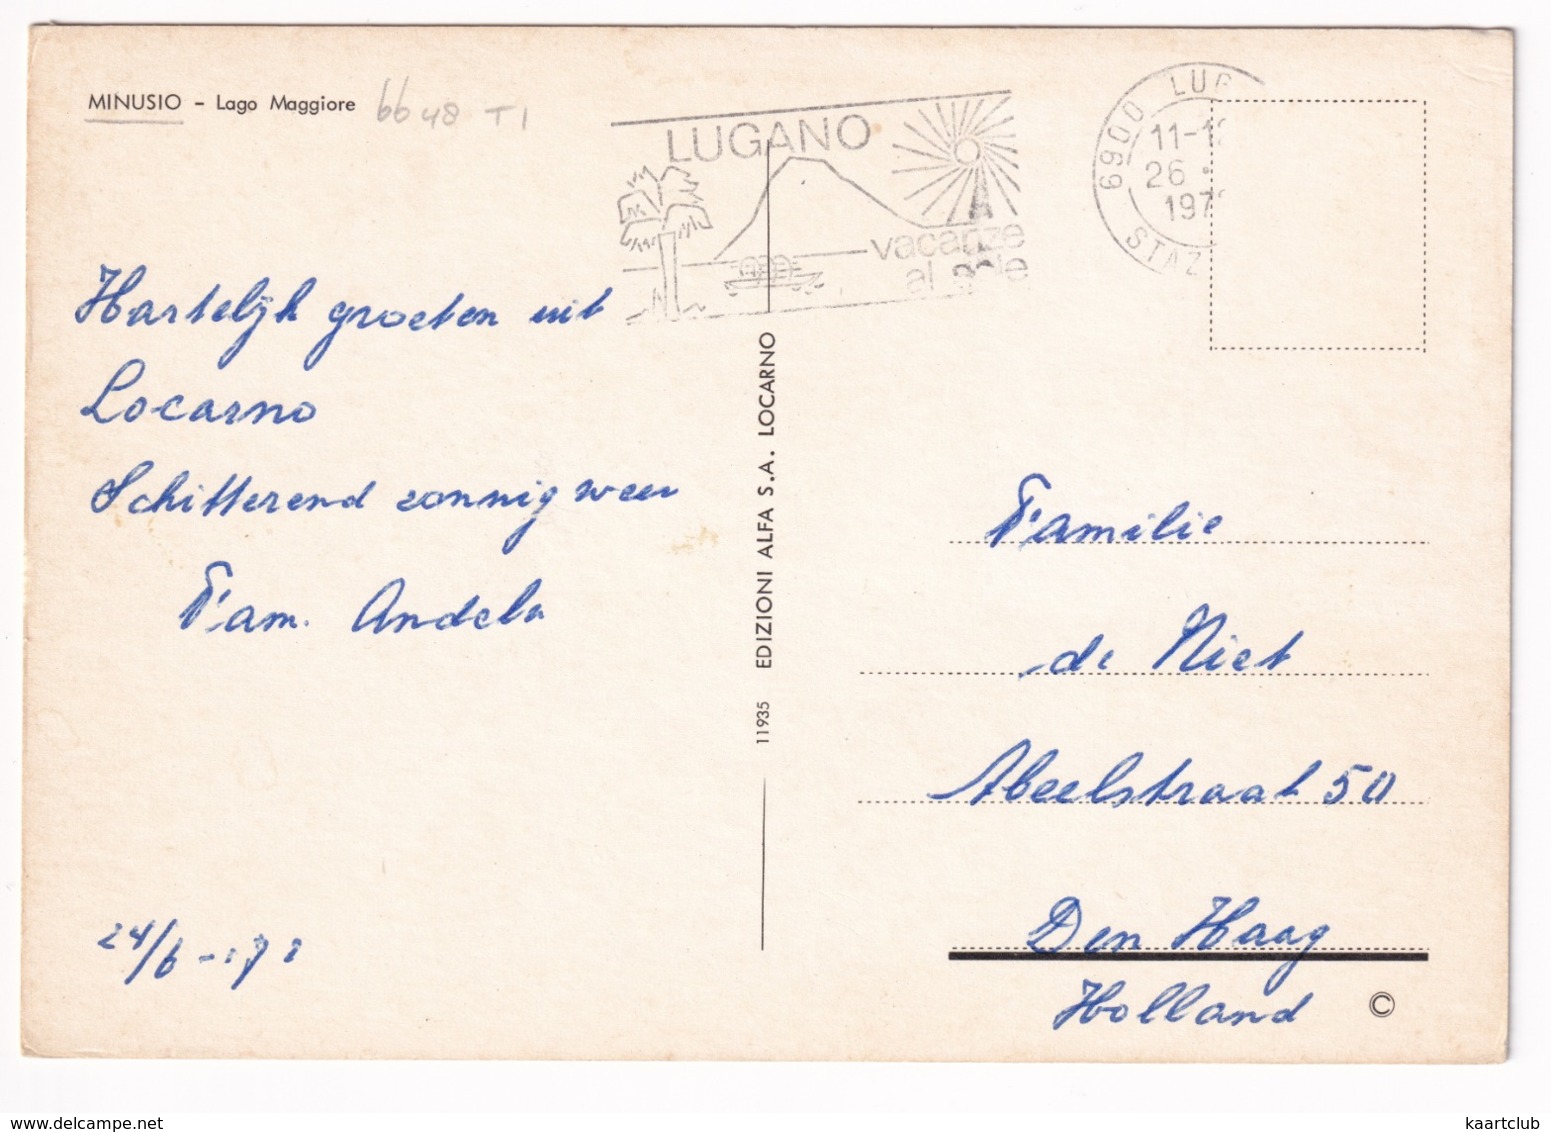 MINUSIO - Lago Maggiore
6648 TI
LUGANO
vacanze
al sole
6900 LUG
11-1
26.
197
STAZ
Hartelijk groeten uit
Locarno
Schitterend zonnig weer
Fam. Andela
24/6-'7
11935 EDIZIONI ALFA S.A. LOCARNO
Familie
de Niet
Abeelstraat 50
Den Haag
Holland
©
delcampe.net
kaartclub